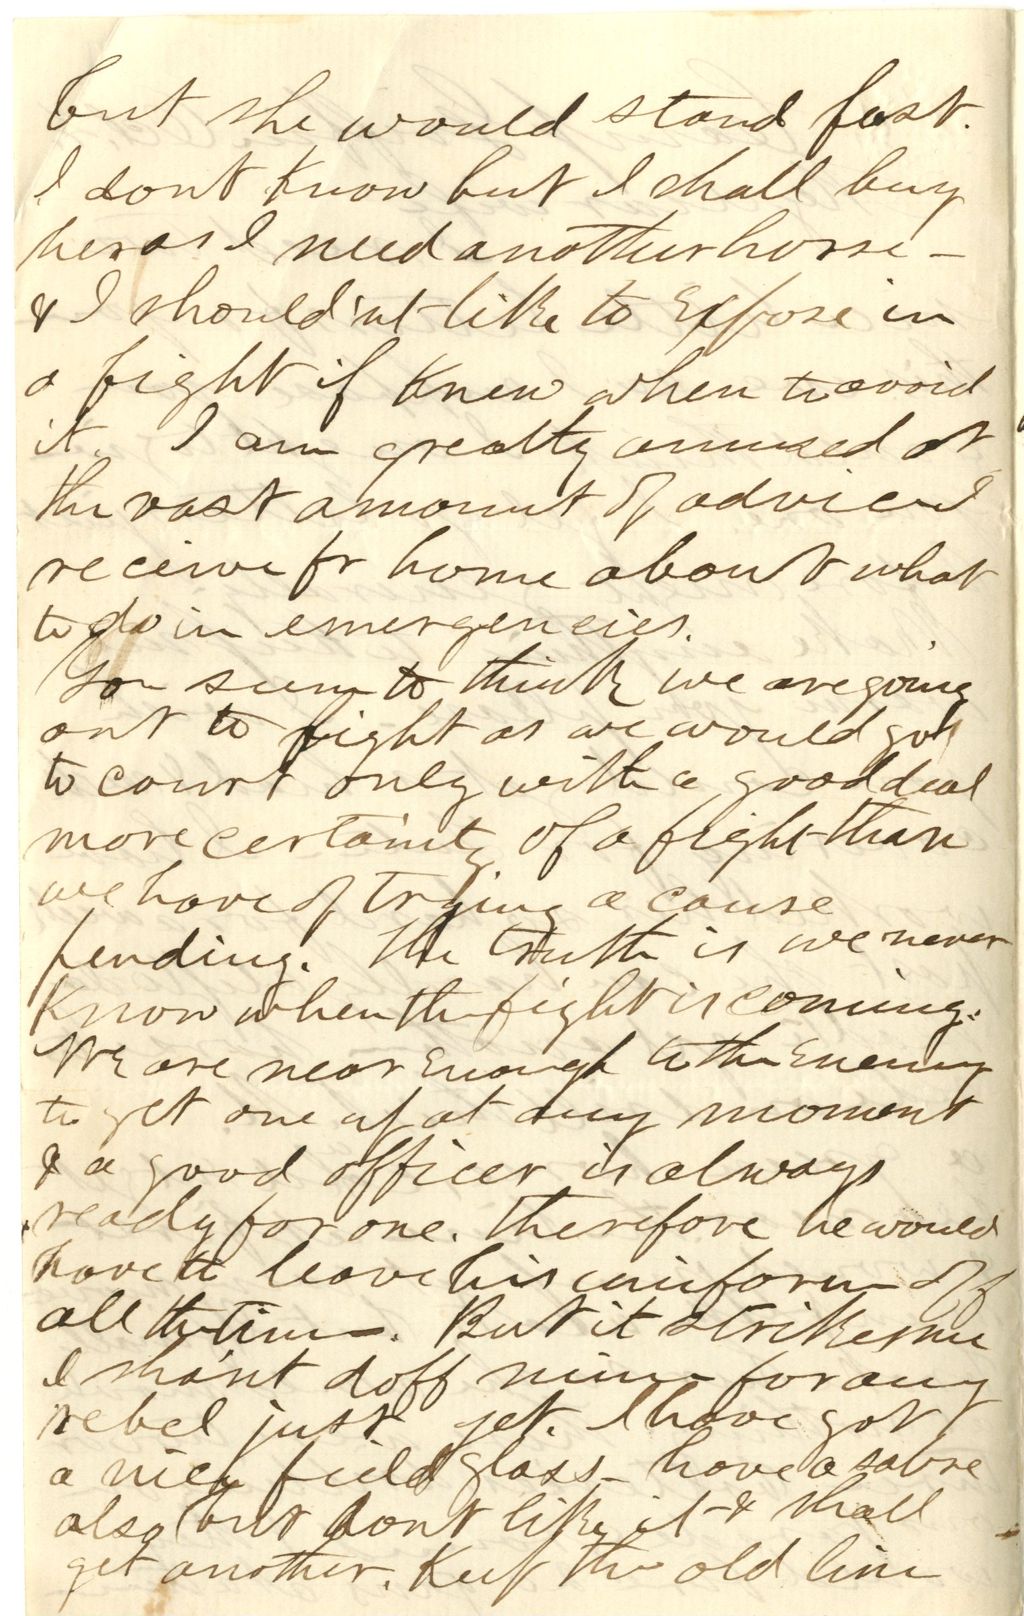 but she would stand fast.
I dont know but I shall buy
her as I need another horse –
& I should'nt like to expose in
a fight if knew when to avoid
it. I am greatly amused at
the vast amount of advice I
receive fr home about what
to do in emergencies.
You seem to think we are going
out to fight as we would go
to court only with a good deal
more certainty of a fight than
we have of trying a cause
pending. The truth is we never
know when the fight is coming.
We are near enough to the enemy
to get one up at any moment
& a good officer is always
ready for one. Therefore he would
have to leave his uniform off
all the time. But it strikes me
I shant doff mine for any
rebel just yet. I have got
a nice field glass – have a sabre
also but dont like it & shall
get another. Keep the old line